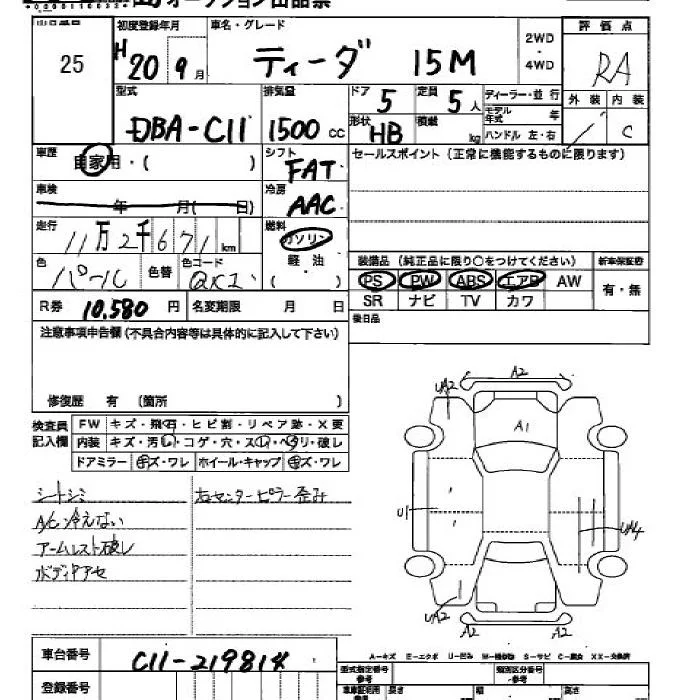 オークション出品票
25
初度登録年月
H20年9月
車名・グレード
ティーダ 15M
2WD
・
4WD
評価点
RA
外装 内装
C
型式
DBA-C11
排気量
1500 cc
ドア 5
定員 5人
形状 HB
積載 kg
ディーラー・並行
モデル年式 年
ハンドル 左・右
車歴
自家用・( )
シフト
FAT
セールスポイント (正常に機能するものに限ります)
車検
年 月( 日)
冷房
AAC
走行
11万2千671 km
燃料
ガソリン
軽・油
( )
色
パール
色替
色コード
QX1
装備品 (純正品に限り○をつけてください)
新車保証書
PS PW ABS エアB AW
有・無
SR ナビ TV カワ
R券 10.580 円
名変期限 月 日
後日品
注意事項申告欄 (不具合内容等は具体的に記入して下さい)
修復歴 有 (箇所 )
検査員記入欄
FW キズ・飛石・ヒビ割・リペア跡・X要
内装 キズ・汚レ・コゲ・穴・スレ・ヘタリ・破レ
ドアミラー キズ・ワレ ホイール・キャップ キズ・ワレ
シートシミ
A/C冷えない
アームレスト破レ
ボディヤケアセ
右センターピラー歪み
A2
UA2
A1
U1
UA4
UA2
A2
A2
A-キズ E-エクボ U-凹み W-補修跡 S-サビ C-腐食 XX-交換済
車台番号
C11-219814
登録番号
型式指定番号
参考
類別区分番号
参考
長さ
幅
高さ